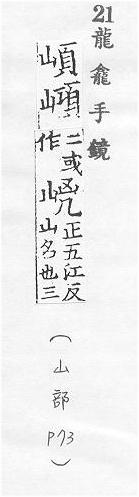 21龍龕手鏡
二或作
正五江反
山名也三
(山部 P73)